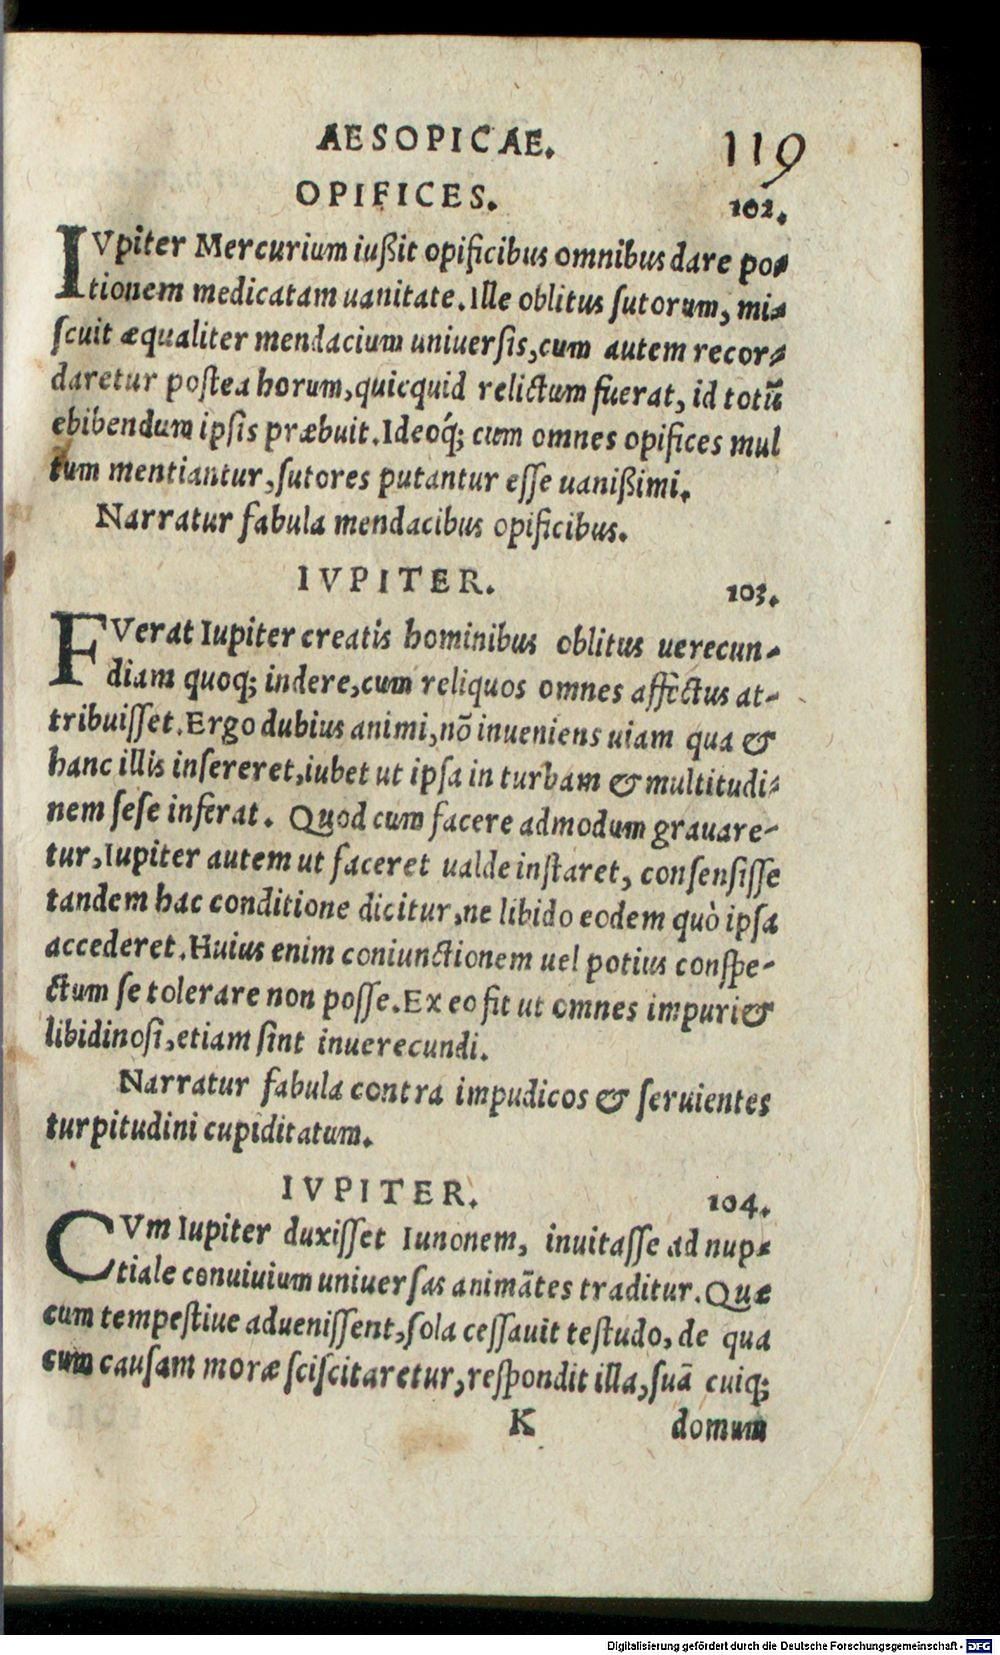 AESOPICAE. 119
OPIFICES. 102.
IVpiter Mercurium iußit opificibus omnibus dare po-
tionem medicatam uanitate. Ille oblitus sutorum, mi-
scuit æqualiter mendacium uniuersis, cum autem recor-
daretur postea horum, quicquid relictum fuerat, id totũ
ebibendum ipsis præbuit. Ideoq́; cum omnes opifices mul
tum mentiantur, sutores putantur esse uanißimi.
Narratur fabula mendacibus opificibus.
IVPITER. 103.
FVerat Iupiter creatis hominibus oblitus uerecun-
diam quoq; indere, cum reliquos omnes affectus at-
tribuisset. Ergo dubius animi, nõ inueniens uiam qua &
hanc illis insereret, iubet ut ipsa in turbam & multitudi-
nem sese inferat. Quod cum facere admodum grauare-
tur, Iupiter autem ut faceret ualde instaret, consensisse
tandem hac conditione dicitur, ne libido eodem quò ipsa
accederet. Huius enim coniunctionem uel potius conspe-
ctum se tolerare non posse. Ex eo fit ut omnes impuri &
libidinosi, etiam sint inuerecundi.
Narratur fabula contra impudicos & seruientes
turpitudini cupiditatum.
IVPITER. 104.
CVm Iupiter duxisset Iunonem, inuitasse ad nup-
tiale conuiuium uniuersas animãtes traditur. Quæ
cum tempestiue aduenissent, sola cessauit testudo, de qua
cum causam moræ sciscitaretur, respondit illa, suã cuiq;
K domum
Digitalisierung gefördert durch die Deutsche Forschungsgemeinschaft - DFG